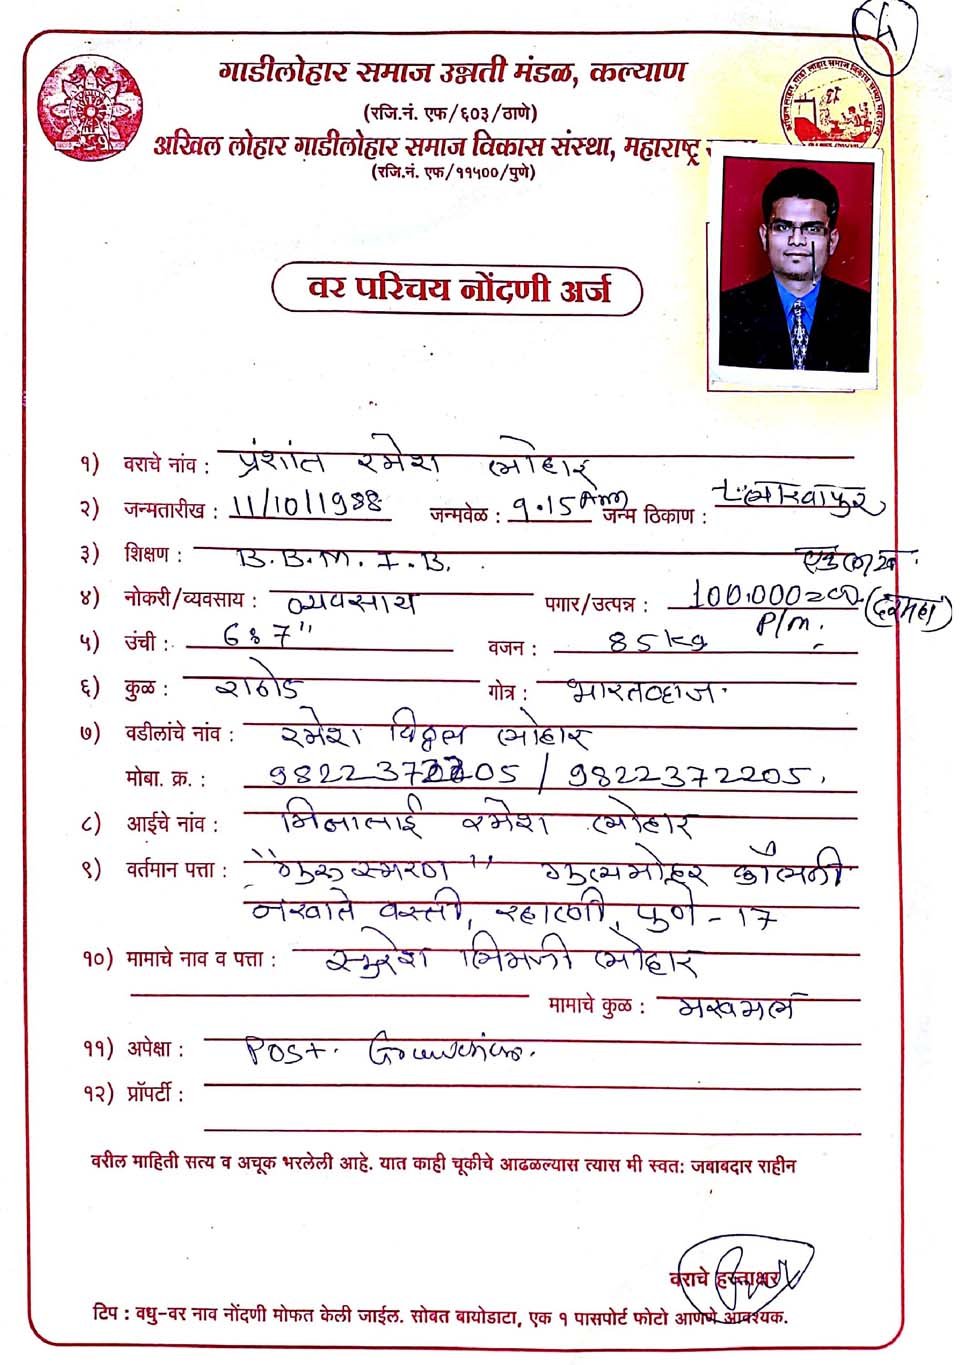 4
गाडीलोहार समाज उन्नती मंडळ, कल्याण
(रजि.नं. एफ/६०३/ठाणे)
अखिल लोहार गाडीलोहार समाज विकास संस्था, महाराष्ट्र
(रजि.नं. एफ/११५००/पुणे)
वर परिचय नोंदणी अर्ज
१) वराचे नांव : प्रंशांत रमेश लोहार
२) जन्मतारीख : 11/10/1988 जन्मवेळ : 9.15 Am जन्म ठिकाण :
३) शिक्षण : B.B.M. I.B. एक लाख
४) नोकरी/व्यवसाय : व्यवसाय पगार/उत्पन्न : 100,000=00 (दरमहा)
P/m.
५) उंची : 6:7" वजन : 85 kg
६) कुळ : राठोड गोत्र : भारतव्दाज
७) वडीलांचे नांव : रमेश विठ्ठल लोहार
मोबा. क्र. : 9822372205 / 9822372205.
८) आईचे नांव : रमेश लोहार
९) वर्तमान पत्ता : "गुरुस्मरण" गुलमोहर कॉलनी
नखाते वस्ती, रहाटणी, पुणे - 17
१०) मामाचे नाव व पत्ता : सुरेश भिमजी लोहार
मामाचे कुळ : मखमले
११) अपेक्षा : Post.
१२) प्रॉपर्टी :
वरील माहिती सत्य व अचूक भरलेली आहे. यात काही चूकीचे आढळल्यास त्यास मी स्वतः जबाबदार राहीन
वराचे हस्ताक्षर
टिप : वधु-वर नाव नोंदणी मोफत केली जाईल. सोबत बायोडाटा, एक १ पासपोर्ट फोटो आणणे आवश्यक.